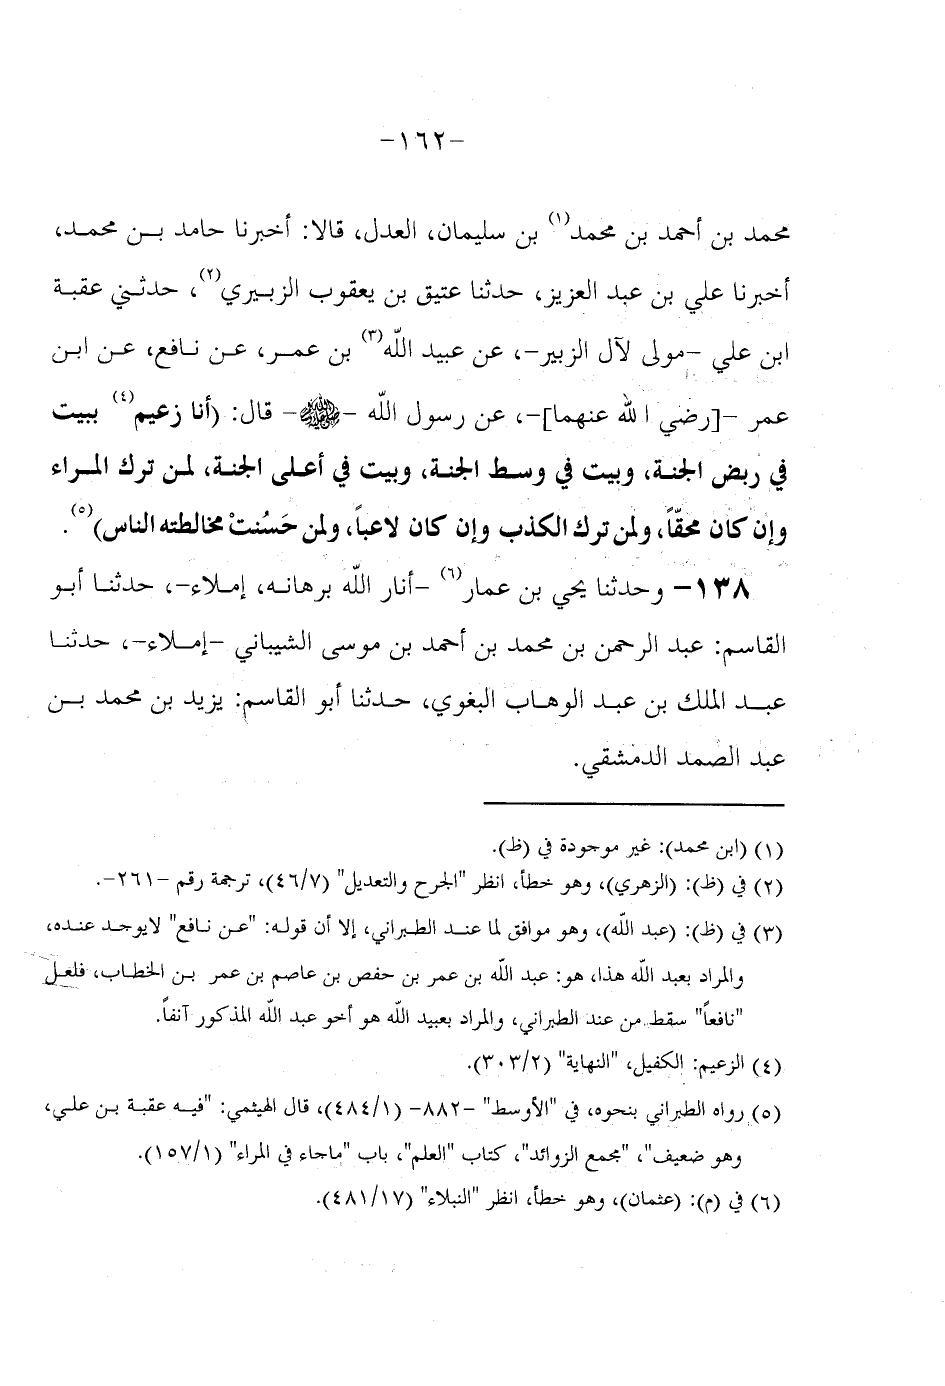 -١٦٢-
محمد بن أحمد بن محمد(١) بن سليمان، العدل، قالا: أخبرنا حامد بـن محمـد،
أخبرنا علي بن عبد العزيز، حدثنا عتيق بن يعقوب الزبـيري(٢)، حدثـني عقبـة
ابن علي -مولى لآل الزبير-، عن عبيد الله(٣) بن عمـر، عـن نـافع، عـن ابـن
عمر -[رضي الله عنهما]-، عن رسول الله -ﷺ- قال: (أنا زعيم(٤) ببيت
في ربض الجنة، وبيت في وسط الجنة، وبيت في أعلى الجنة، لمـن ترك المـراء
وإن كان محقّاً، ولمن ترك الكذب وإن كان لاعباً، ولمن حَسُنتْ مخالطته الناس)(٥).
١٣٨- وحدثنا يحي بن عمار(٦) -أنار الله برهانـه، إمـلاء-، حدثنـا أبـو
القاسم: عبد الرحمن بن محمد بن أحمد بن موسى الشيباني -إمـلاء-، حدثنـا
عبـد الملك بن عبـد الوهـاب البغوي، حـدثنا أبو القاسم: يزيد بن محمد بـن
عبد الصمد الدمشقي.
(١) (ابن محمد): غير موجودة في (ظ).
(٢) في (ظ): (الزهري)، وهو خطأ، انظر "الجرح والتعديل" (٤٦/٧)، ترجمة رقم -٢٦١-.
(٣) في (ظ): (عبد الله)، وهو موافق لما عنـد الطـبراني، إلا أن قولـه: "عـن نـافع" لايوجـد عنـده،
والمراد بعبد الله هذا، هو: عبد الله بن عمر بن حفص بن عاصم بن عمر بـن الخطـاب، فلعـل
"نافعاً" سقط من عند الطبراني، والمراد بعبيد الله هو أخو عبد الله المذكور آنفاً.
(٤) الزعيم: الكفيل، "النهاية" (٣٠٣/٢).
(٥) رواه الطبراني بنحوه، في "الأوسط" -٨٨٢- (٤٨٤/١)، قال الهيثمي: "فيـه عقبـة بـن علـي،
وهو ضعيف"، "مجمع الزوائد"، كتاب "العلم"، باب "ماجاء في المراء" (١٥٧/١).
(٦) في (م): (عثمان)، وهو خطأ، انظر "النبلاء" (٤٨١/١٧).